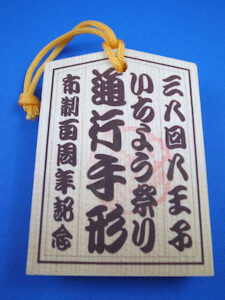 三八回八王子
いちょう祭り
通行手形
市制百周年記念